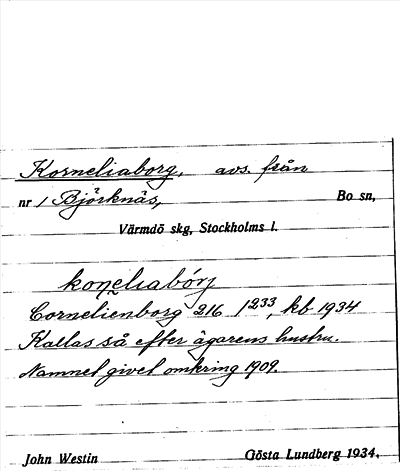 Korneliaborg, avs. från
nr 1 Björknäs, Bo sn,
Värmdö skg, Stockholms l.
Cornelienborg 216 1233, kb 1934
Kallas så efter ägarens hustru.
Namnet givet omkring 1909.
John Westin Gösta Lundberg 1934.